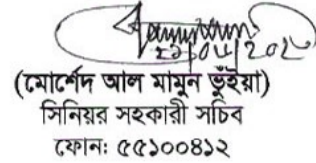 (মোর্শেদ আল মামুন ভুঁইয়া)
সিনিয়র সহকারী সচিব
ফোন: ৫৫১০০৪১২